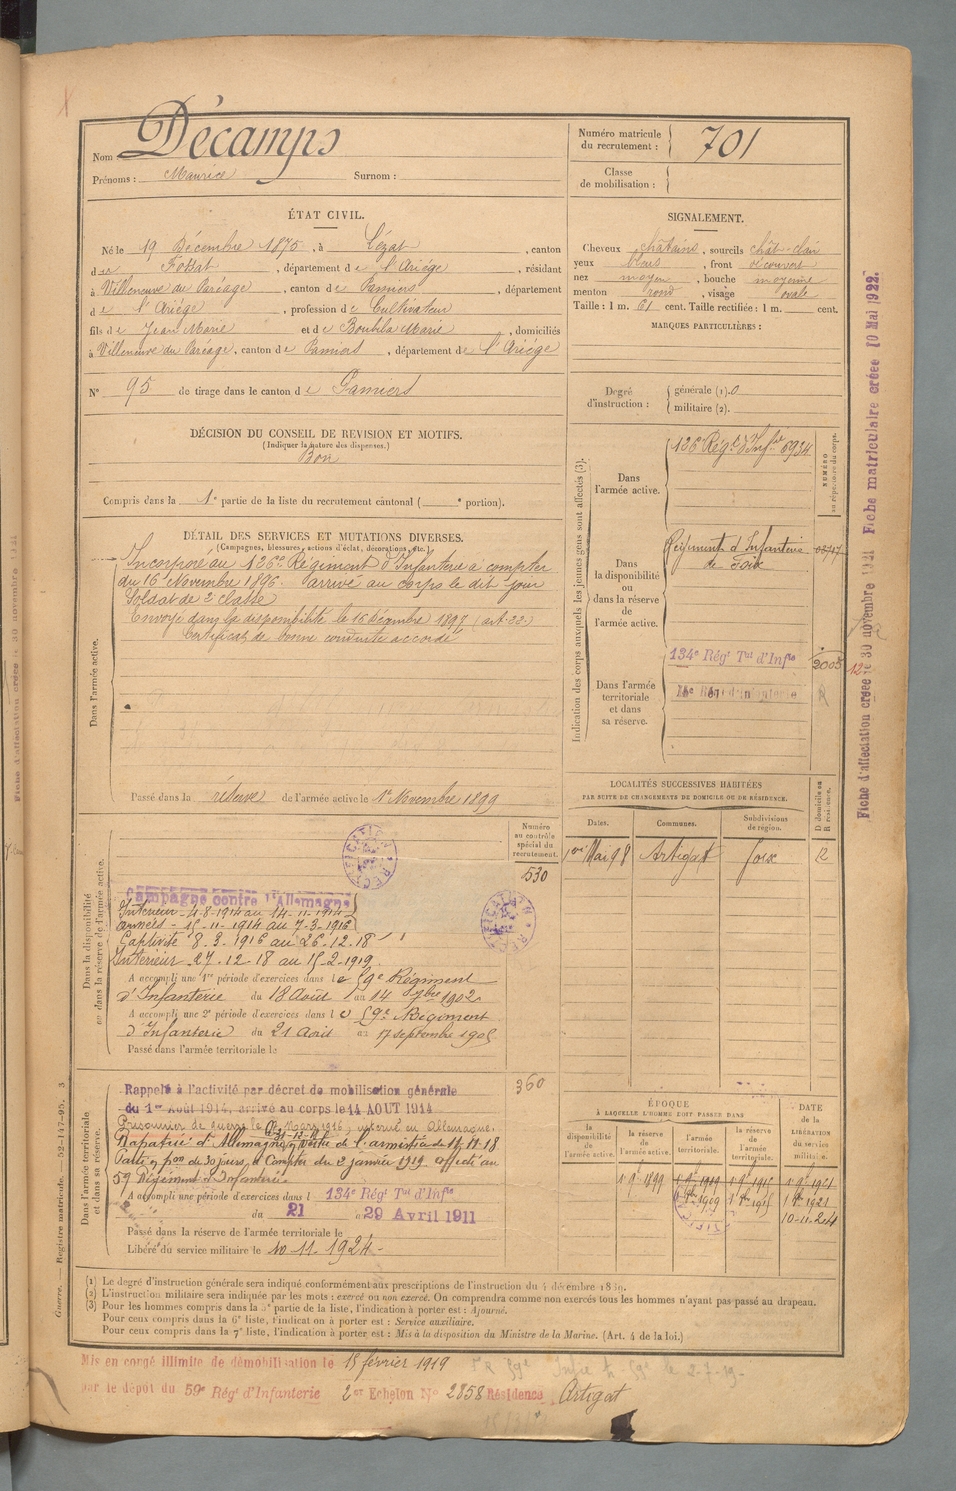 Nom : Décamps
Prénoms : Maurice Surnom :
Numéro matricule du recrutement : 701
Classe de mobilisation :
ÉTAT CIVIL.
Né le 19 Décembre 1875, à Lézat, canton
de Fossat, département de l'Ariége, résidant
à Villeneuve du Paréage, canton de Pamiers, département
de l'Ariége, profession de Cultivateur
fils de Jean Marie et de Boubila Marie, domiciliés
à Villeneuve du Paréage, canton de Pamiers, département de l'Ariége
N° 95 de tirage dans le canton de Pamiers
SIGNALEMENT.
Cheveux châtains, sourcils chât-clair
yeux bleus, front découvert
nez moyen, bouche moyenne
menton rond, visage ovale
Taille : 1 m. 61 cent. Taille rectifiée : 1 m. cent.
MARQUES PARTICULIÈRES :
Degré d'instruction : générale (1). 0
militaire (2).
DÉCISION DU CONSEIL DE REVISION ET MOTIFS.
(Indiquer la nature des dispenses.)
Bon
Compris dans la 1e partie de la liste du recrutement cantonal ( e portion).
DÉTAIL DES SERVICES ET MUTATIONS DIVERSES.
(Campagnes, blessures, actions d'éclat, décorations, etc.)
Dans l'armée active.
Incorporé au 126e Régiment d'Infanterie à compter
du 16 Novembre 1896. arrivé au corps le dit jour
Soldat de 2e classe
Envoyé dans la disponibilité le 16 décembre 1897 (art. 22.)
Certificat de bonne conduite accordé
Passé dans la réserve de l'armée active le 1er Novembre 1899
Indication des corps auxquels les jeunes gens sont affectés (3).
NUMÉRO au répertoire du corps.
Dans l'armée active.
126e Régt d'Infie 6934
Dans la disponibilité ou dans la réserve de l'armée active.
Régiment d'Infanterie
de Foix
134e Régt Tal d'Infie
2005
Dans l'armée territoriale et dans sa réserve.
LOCALITÉS SUCCESSIVES HABITÉES
PAR SUITE DE CHANGEMENTS DE DOMICILE OU DE RÉSIDENCE.
Dates. Communes. Subdivisions de région. D domicile ou R résidence.
1er Mai 98 Artigat Foix R
Dans la disponibilité ou dans la réserve de l'armée active.
Numéro au contrôle spécial du recrutement.
530
RECTIFICATION
Campagne contre l'Allemagne
Intérieur - 4-8-1914 au 14-11-1914
armées - 15-11-1914 au 7-3-1916
Captivité 8.3.1916 au 26.12.18
Intérieur 27.12.18 au 15-2-1919.
RECTIFICATION
A accompli une 1re période d'exercices dans le 59e Régiment
d'Infanterie du 18 Août au 14 7bre 1902
A accompli une 2e période d'exercices dans le 59e Régiment
d'Infanterie du 21 Août au 17 septembre 1905
Passé dans l'armée territoriale le
Dans l'armée territoriale et dans sa réserve.
360
Rappelé à l'activité par décret de mobilisation générale
du 1er Août 1914, arrivé au corps le 14 AOUT 1914
Prisonnier de guerre le 8 Mars 1916, interné en Allemagne.
Rapatrié d'Allemagne en vertu de l'armistice du 11.11.18
59e Régiment d'Infanterie
A accompli une période d'exercices dans l 134e Régt Tal d'Infie
du 21 a 29 Avril 1911
Passé dans la réserve de l'armée territoriale le
Libéré du service militaire le 10-11-1924-
ÉPOQUE
À LAQUELLE L'HOMME DOIT PASSER DANS
la disponibilité de l'armée active. la réserve de l'armée active. l'armée territoriale. la réserve de l'armée territoriale.
DATE de la LIBÉRATION du service militaire.
10-11-24
(1) Le degré d'instruction générale sera indiqué conformément aux prescriptions de l'instruction du 4 décembre 1889.
(2) L'instruction militaire sera indiquée par les mots : exercé ou non exercé. On comprendra comme non exercés tous les hommes n'ayant pas passé au drapeau.
(3) Pour les hommes compris dans la 5e partie de la liste, l'indication à porter est : Ajourné.
Pour ceux compris dans la 6e liste, l'indication à porter est : Service auxiliaire.
Pour ceux compris dans la 7e liste, l'indication à porter est : Mis à la disposition du Ministre de la Marine. (Art. 4 de la loi.)
Mis en congé illimité de démobilisation le 15 février 1919
par le dépôt du 59e Régt d'Infanterie 2er Echelon N° 2858 Résidence Artigat
Guerre. — Registre matricule. — 52-147-95. 3
Fiche d'affectation créée le 30 novembre 1921 Fiche matriculaire créée 10 Mai 1922.